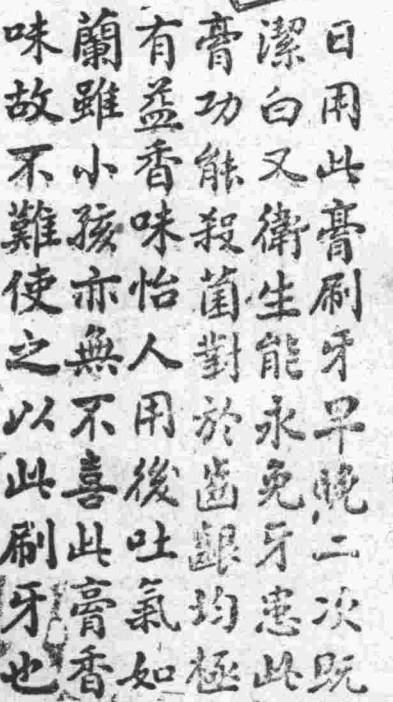 日用此膏刷牙早晚二次既
潔白又衛生能永免牙患此
膏功能殺菌對於齒齦均極
有益香味怡人用後吐氣如
蘭雖小孩亦無不喜此膏香
味故不難使之以此刷牙也